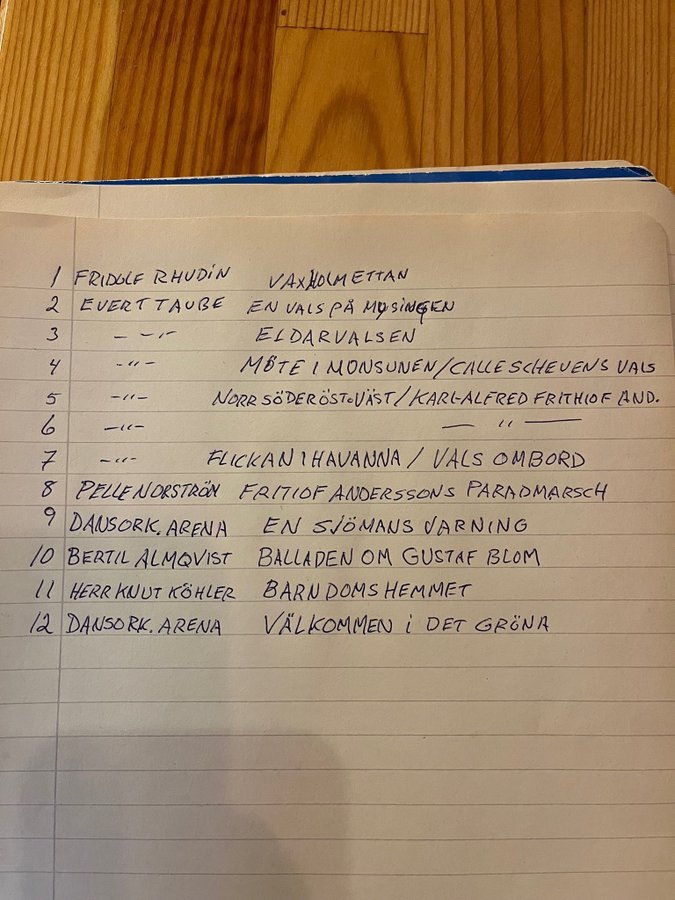 1 FRIDOLF RHUDIN VAXHOLMETTAN
2 EVERT TAUBE EN VALS PÅ MYSINGEN
3 -"- ELDARVALSEN
4 -"- MÖTE I MONSUNEN/CALLE SCHEVENS VALS
5 -"- NORR SÖDER ÖST O VÄST/KARL-ALFRED FRITHIOF AND.
6 -"- — " —
7 -"- FLICKAN I HAVANNA / VALS OMBORD
8 PELLE NORSTRÖM FRITIOF ANDERSSONS PARADMARSCH
9 DANSORK. ARENA EN SJÖMANS VARNING
10 BERTIL ALMQVIST BALLADEN OM GUSTAF BLOM
11 HERR KNUT KÖHLER BARNDOMSHEMMET
12 DANSORK. ARENA VÄLKOMMEN i DET GRÖNA